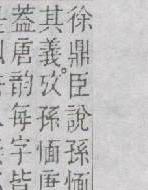 徐鼎臣說孫愐
其義攷孫愐唐
蓋唐韵每字皆